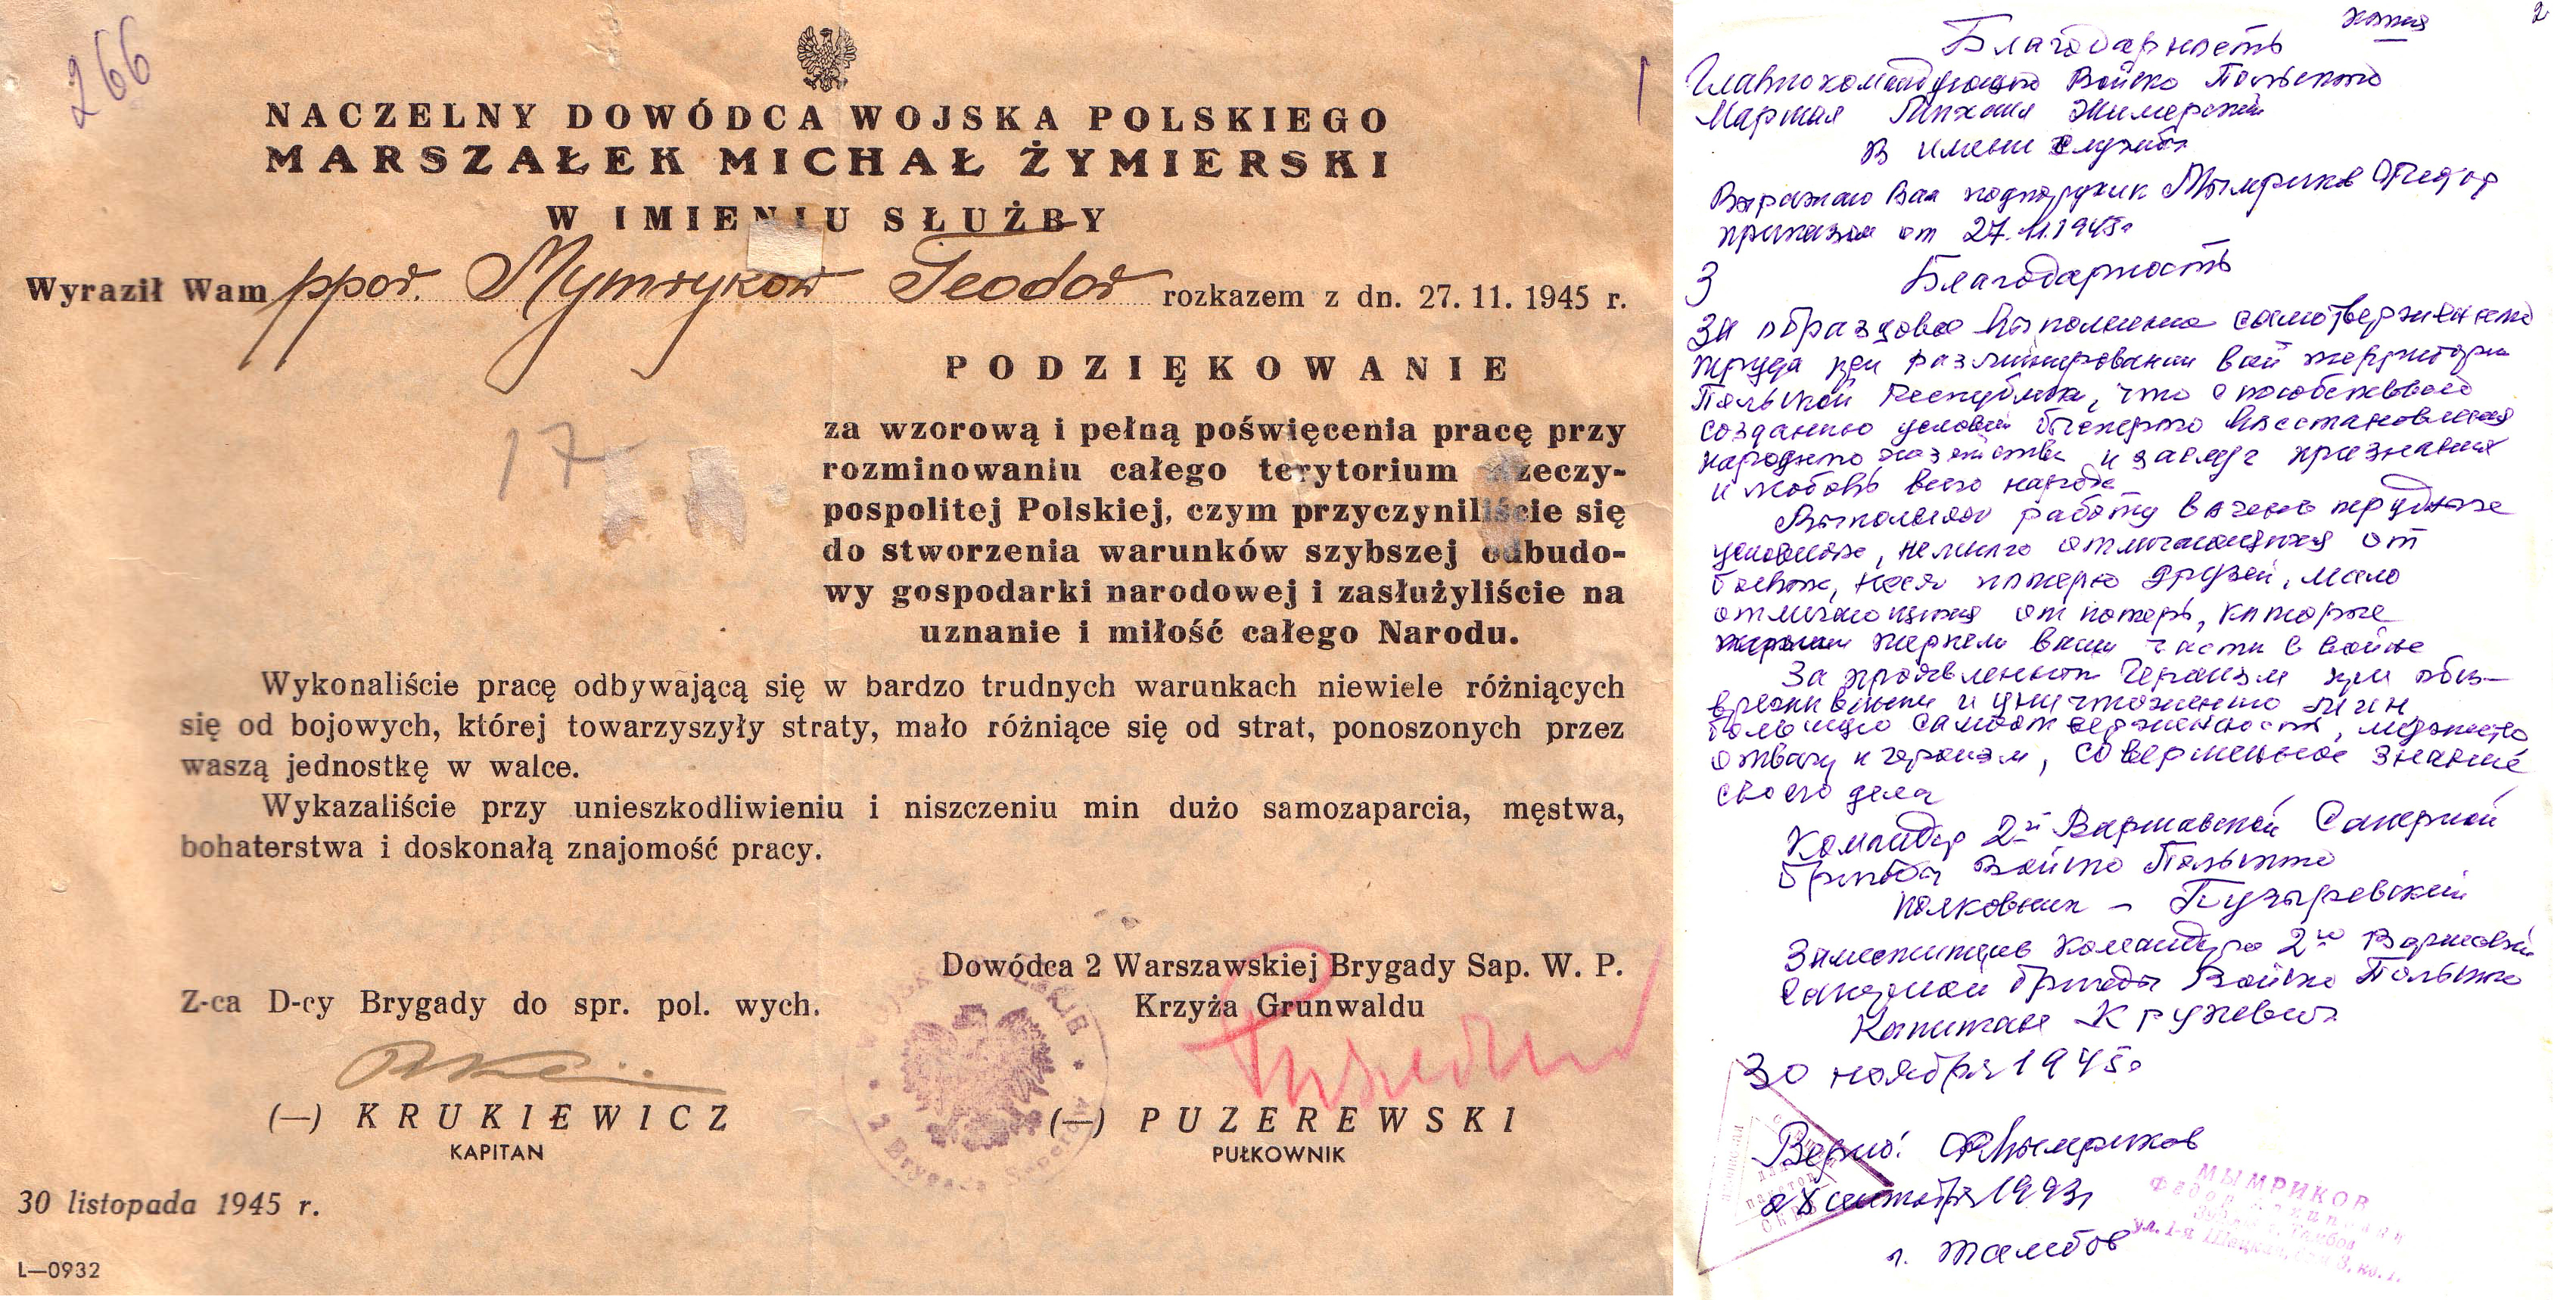 266
NACZELNY DOWÓDCA WOJSKA POLSKIEGO
MARSZAŁEK MICHAŁ ŻYMIERSKI
W IMIENIU SŁUŻBY
Wyraził Wam ppor. Mymrykow Teodor rozkazem z dn. 27. 11. 1945 r.
PODZIĘKOWANIE
17
za wzorową i pełną poświęcenia pracę przy
rozminowaniu całego terytorium Rzeczy-
pospolitej Polskiej, czym przyczyniliście się
do stworzenia warunków szybszej odbudo-
wy gospodarki narodowej i zasłużyliście na
uznanie i miłość całego Narodu.
Wykonaliście pracę odbywającą się w bardzo trudnych warunkach niewiele różniących
się od bojowych, której towarzyszyły straty, mało różniące się od strat, ponoszonych przez
waszą jednostkę w walce.
Wykazaliście przy unieszkodliwieniu i niszczeniu min dużo samozaparcia, męstwa,
bohaterstwa i doskonałą znajomość pracy.
Dowódca 2 Warszawskiej Brygady Sap. W. P.
Z-ca D-cy Brygady do spr. pol. wych.
Krzyża Grunwaldu
(—) KRUKIEWICZ
KAPITAN
(—) PUZEREWSKI
PUŁKOWNIK
30 listopada 1945 r.
L—0932
копия
2
Благодарность
Главнокомандующего Войско Польского
Маршал Михаил Жимерский
В имени службы
Выражаю Вам подпоручик Мымриков Федор
приказом от 27.11.1945г
3
Благодарность
За образцовое выполнение самоотверженного
труда при разминировании всей территории
Польской Республики, что способствовало
созданию условий быстрого восстановления
народного хозяйства и заслуг признания
и любовь всего народа
Выполняя работу в очень трудных
условиях, немного отличающихся от
боевых, неся потерю друзей, мало
отличающихся от потерь, которые
терпели ваши части в войне
За проявленный героизм при обез-
вреживании и уничтожению мин
большую самоотверженность, мужество
отвагу и героизм, совершенное знание
своего дела
Командир 2й Варшавской Саперной
бригады Войско Польского
полковник – Пузыревский
Заместитель командира 2й Варшавской
Саперной бригады Войско Польского
Капитан Крукевич
30 ноября 1945г
Верно: Мымриков
сентября 1993г
г. Тамбов
МЫМРИКОВ